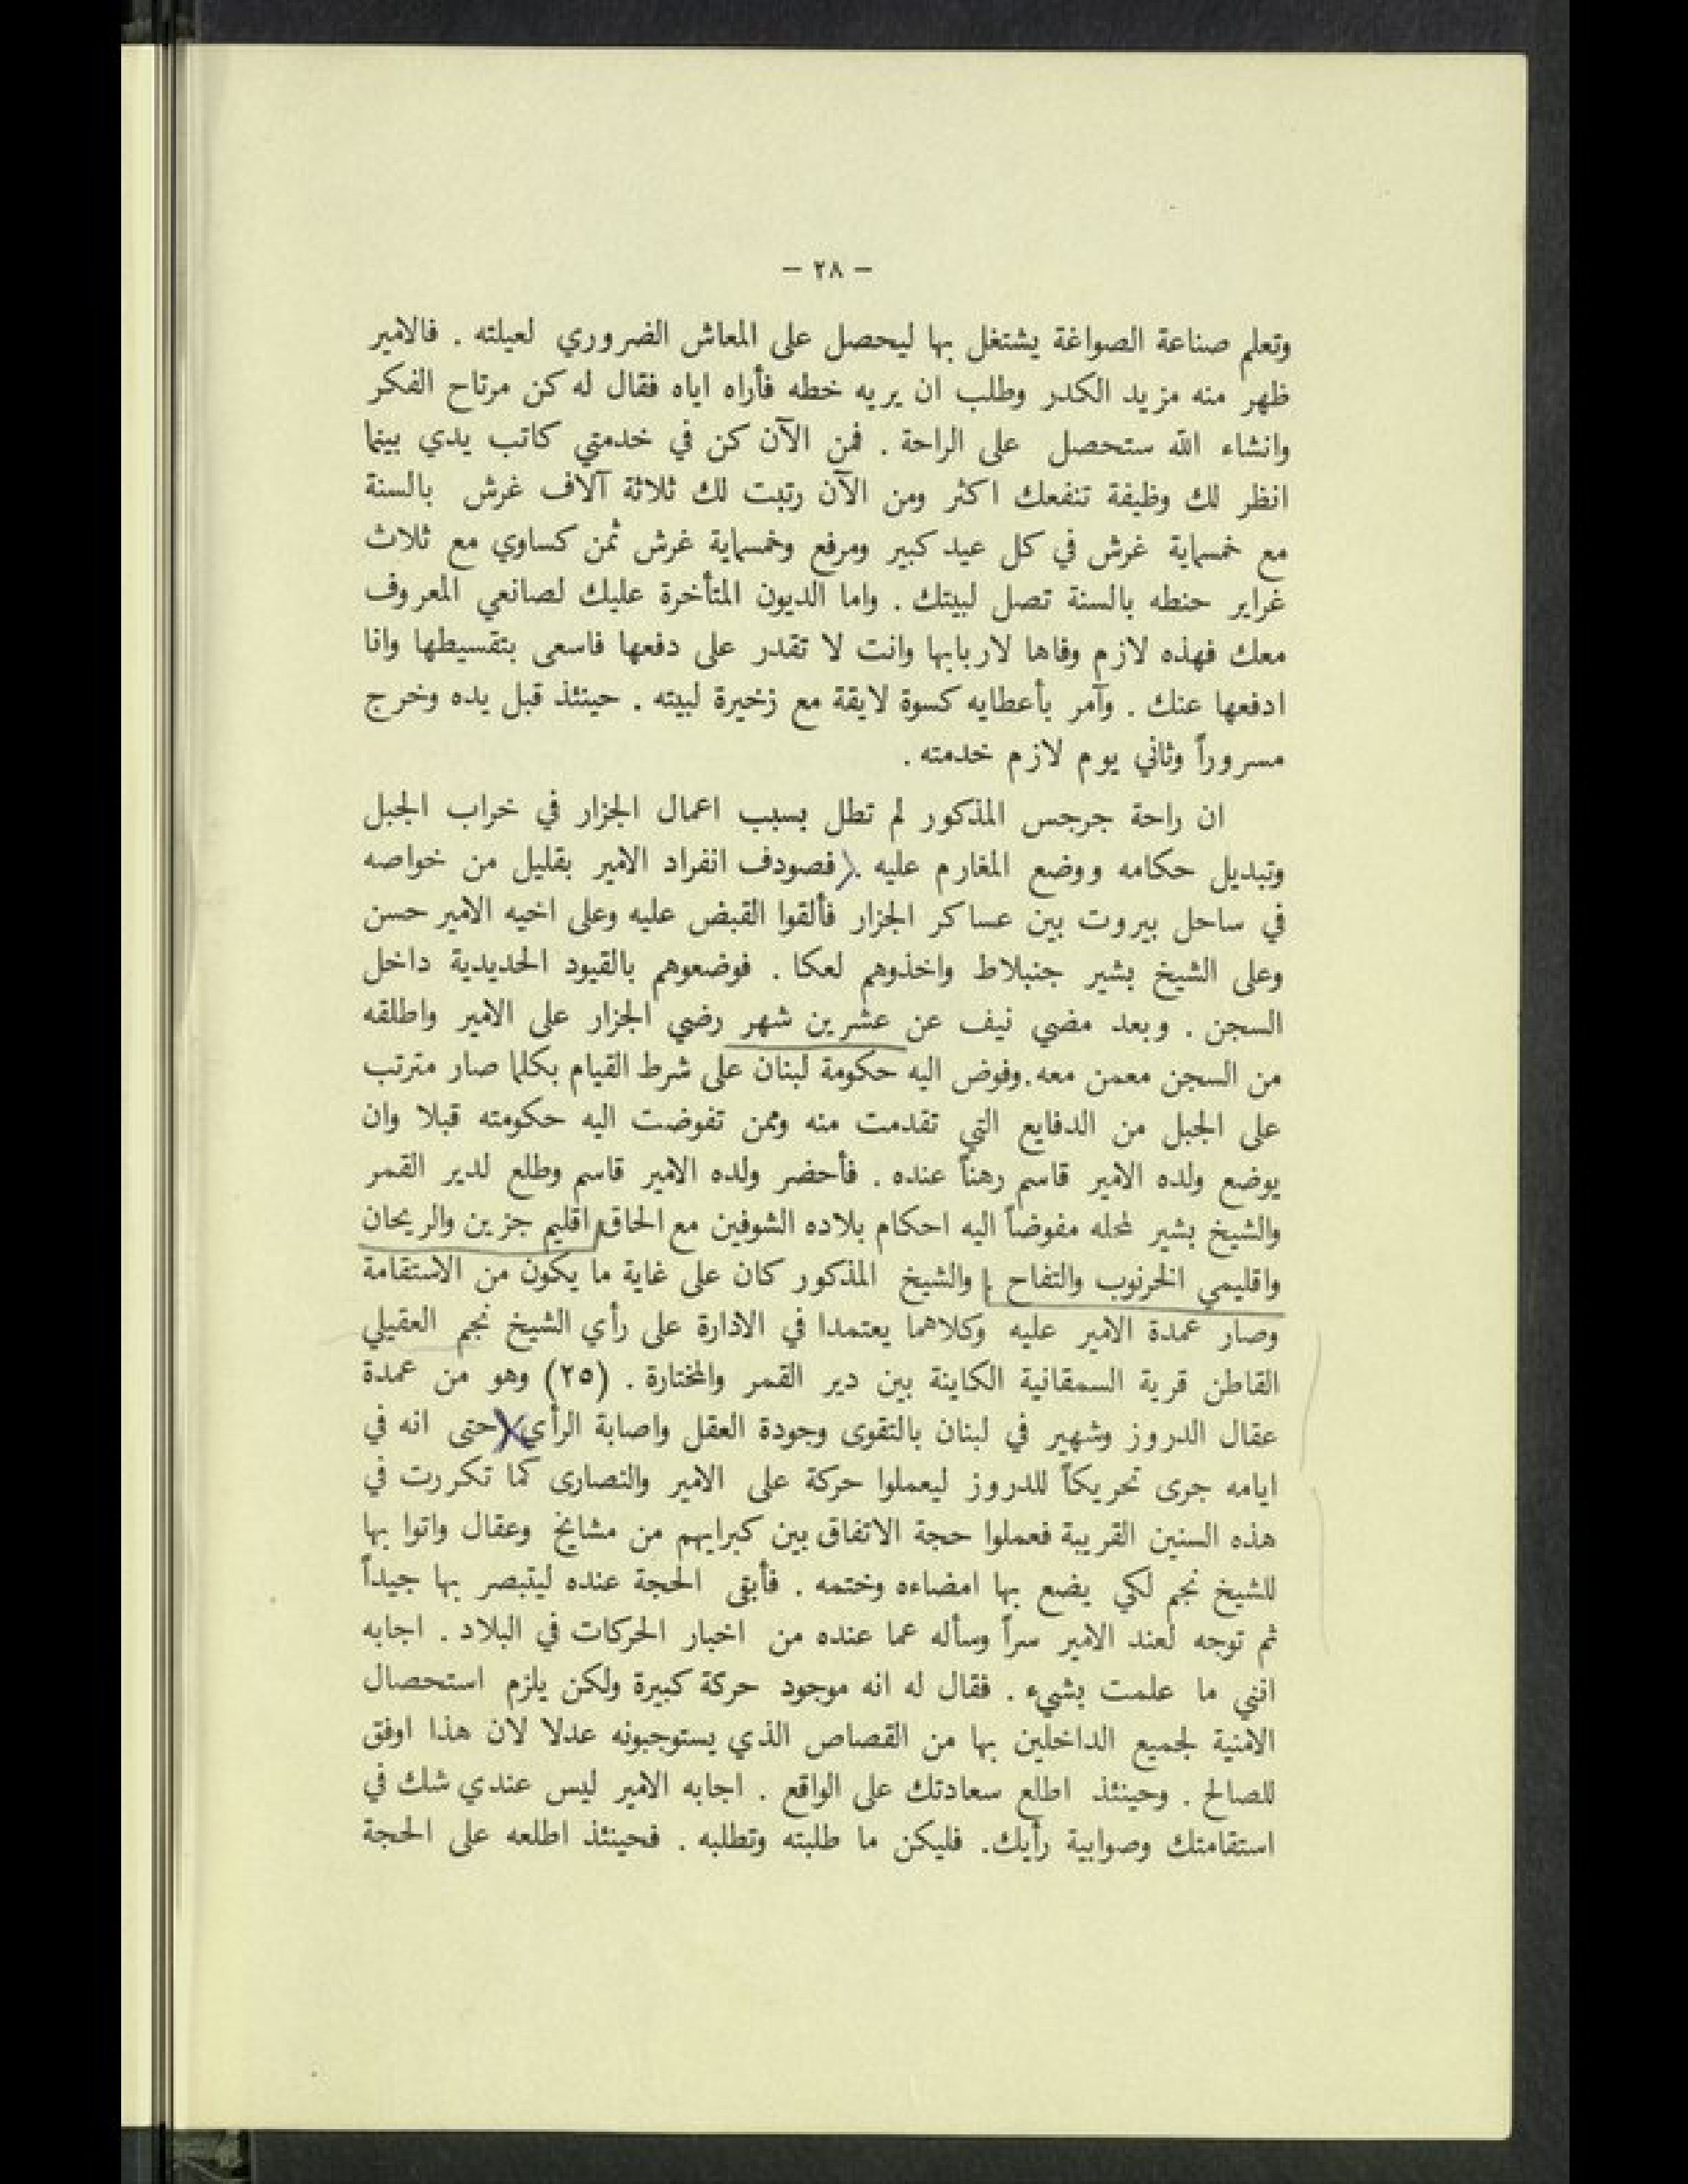 — ٢٨ —
وتعلم صناعة الصواغة يشتغل بها ليحصل على المعاش الضروري لعيلته . فالامير
ظهر منه مزيد الكدر وطلب ان يريه خطه فأراه اياه فقال له كن مرتاح الفكر
وانشاء الله ستحصل على الراحة . فمن الآن كن في خدمتي كاتب يدي بينما
انظر لك وظيفة تنفعك اكثر ومن الآن رتبت لك ثلاثة آلاف غرش بالسنة
مع خمسماية غرش في كل عيد كبير ومرفع وخمسماية غرش ثمن كساوي مع ثلاث
غراير حنطه بالسنة تصل لبيتك . واما الديون المتأخرة عليك لصانعي المعروف
معك فهذه لازم وفاها لاربابها وانت لا تقدر على دفعها فاسعى بتقسيطها وانا
ادفعها عنك . وآمر بأعطايه كسوة لايقة مع زخيرة لبيته . حينئذ قبل يده وخرج
مسروراً وثاني يوم لازم خدمته .
ان راحة جرجس المذكور لم تطل بسبب اعمال الجزار في خراب الجبل
وتبديل حكامه ووضع المغارم عليه . فصودف انفراد الامير بقليل من خواصه
في ساحل بيروت بين عساكر الجزار فألقوا القبض عليه وعلى اخيه الامير حسن
وعلى الشيخ بشير جنبلاط واخذوهم لعكا . فوضعوهم بالقيود الحديدية داخل
السجن . وبعد مضي نيف عن عشرين شهر رضي الجزار على الامير واطلقه
من السجن معمن معه.وفوض اليه حكومة لبنان على شرط القيام بكلما صار مترتب
على الجبل من الدفايع التي تقدمت منه وممن تفوضت اليه حكومته قبلا وان
يوضع ولده الامير قاسم رهناً عنده . فأحضر ولده الامير قاسم وطلع لدير القمر
والشيخ بشير لمحله مفوضاً اليه احكام بلاده الشوفين مع الحاق اقليم جزين والريحان
واقليمي الخرنوب والتفاح . والشيخ المذكور كان على غاية ما يكون من الاستقامة
وصار عمدة الامير عليه وكلاهما يعتمدا في الادارة على رأي الشيخ نجم العقيلي
القاطن قرية السمقانية الكاينة بين دير القمر والمختارة . (٢٥) وهو من عمدة
عقال الدروز وشهير في لبنان بالتقوى وجودة العقل واصابة الرأي حتى انه في
ايامه جرى تحريكاً للدروز ليعملوا حركة على الامير والنصارى كما تكررت في
هذه السنين القريبة فعملوا حجة الاتفاق بين كبرايهم من مشايخ وعقال واتوا بها
للشيخ نجم لكي يضع بها امضاءه وختمه . فأبقى الحجة عنده ليتبصر بها جيداً
ثم توجه لعند الامير سراً وسأله عما عنده من اخبار الحركات في البلاد . اجابه
انني ما علمت بشيء . فقال له انه موجود حركة كبيرة ولكن يلزم استحصال
الامنية لجميع الداخلين بها من القصاص الذي يستوجبونه عدلا لان هذا اوفق
للصالح . وحينئذ اطلع سعادتك على الواقع . اجابه الامير ليس عندي شك في
استقامتك وصوابية رأيك. فليكن ما طلبته وتطلبه . فحينئذ اطلعه على الحجة